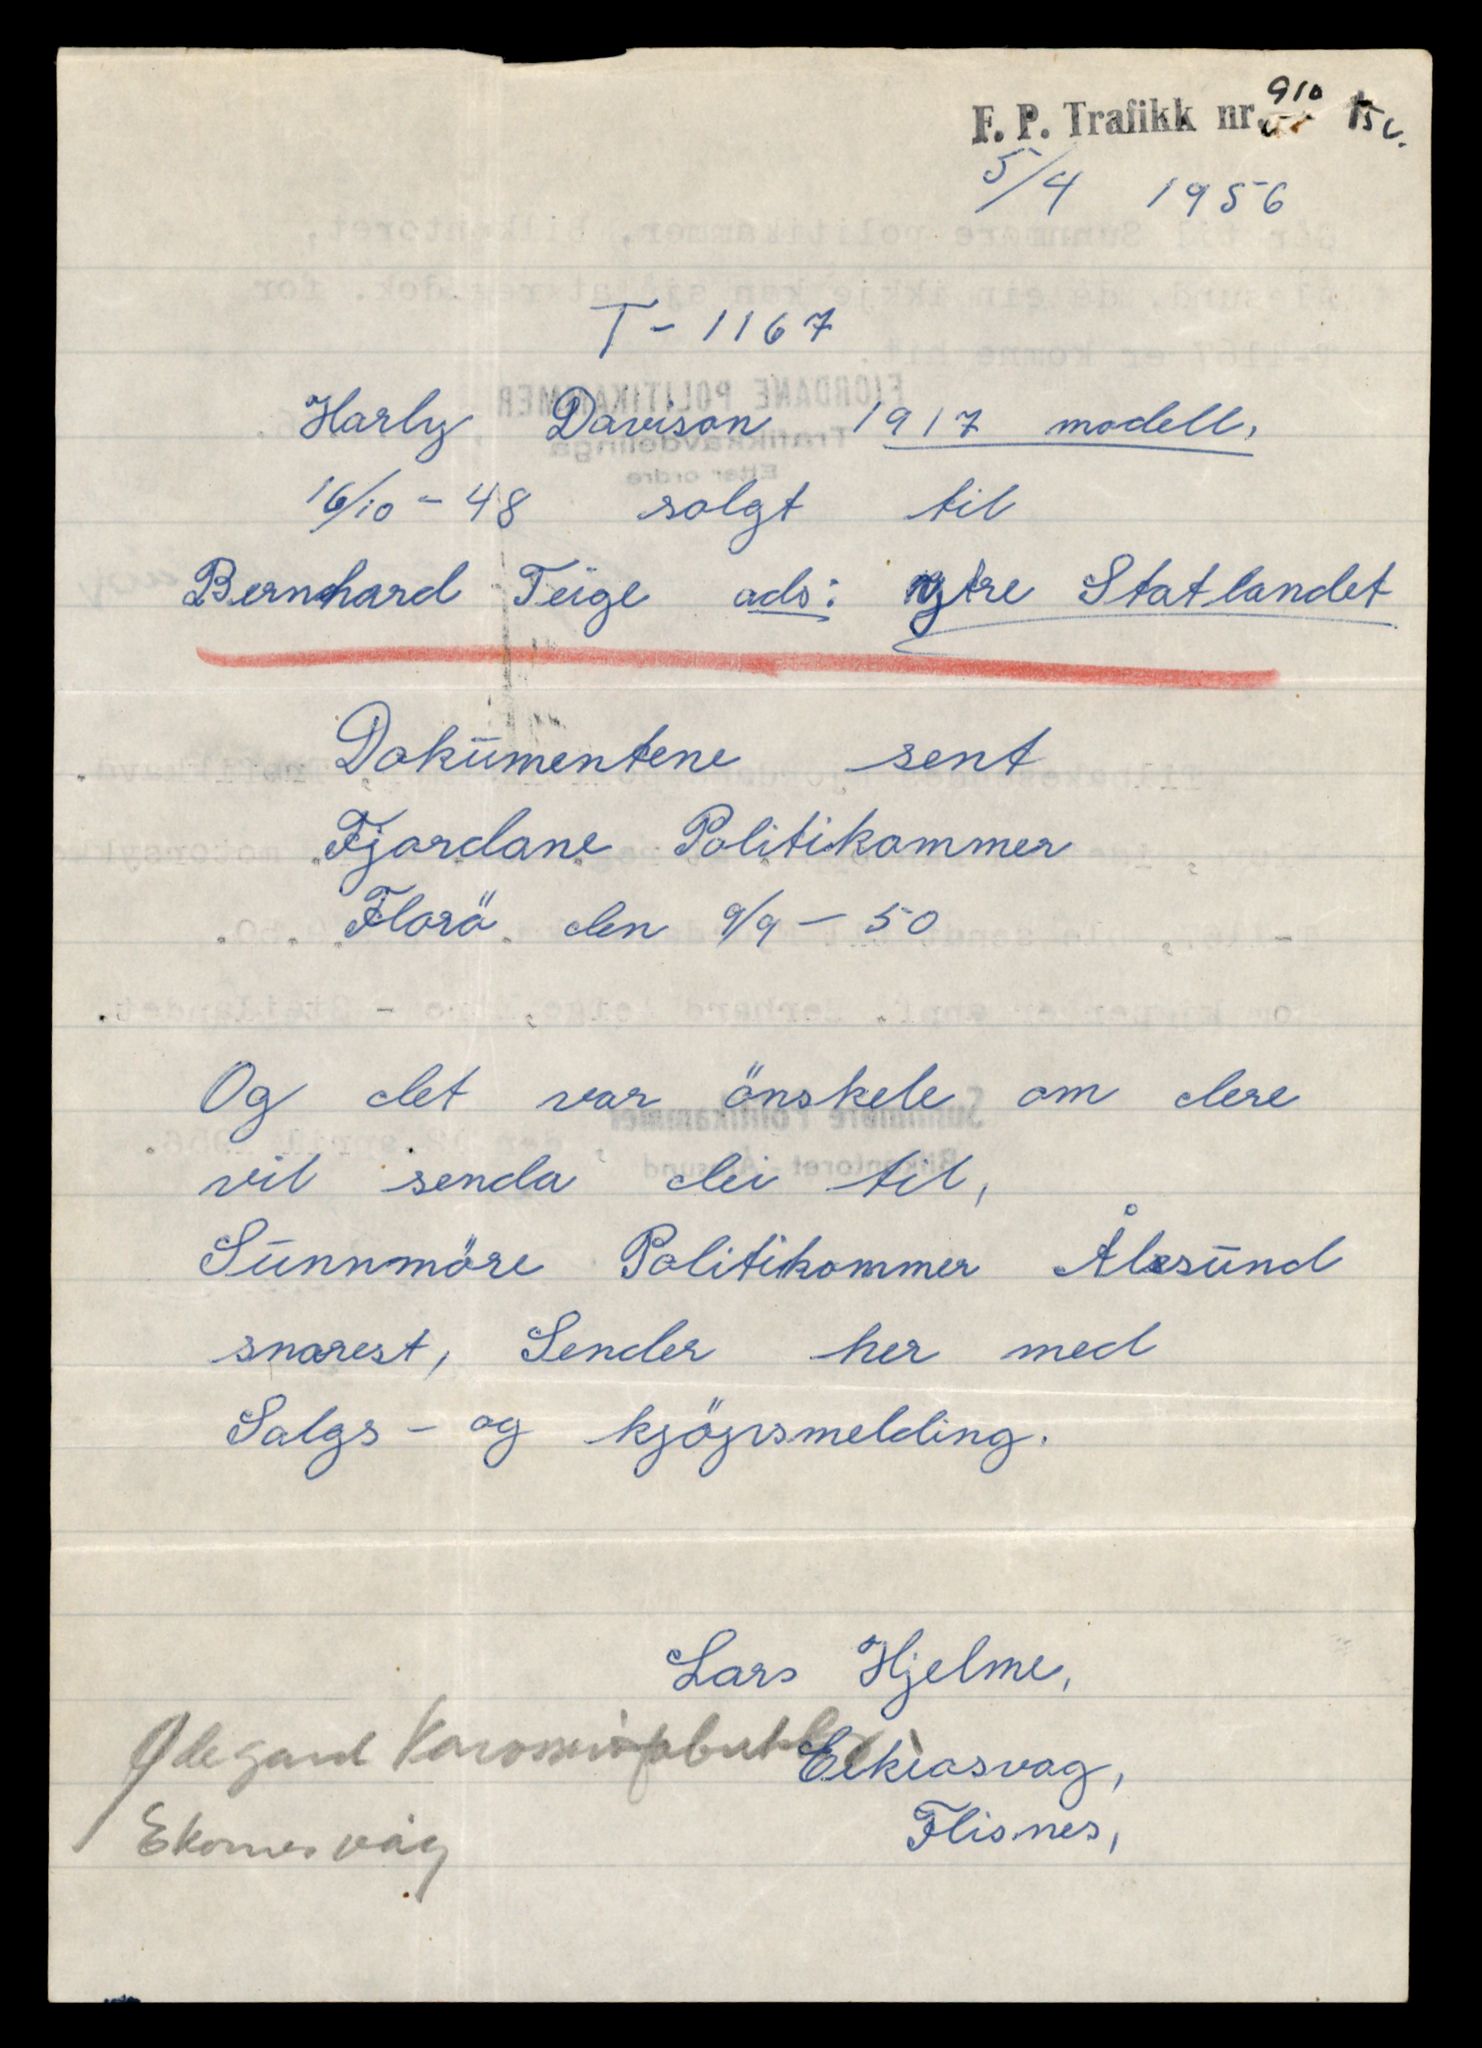 F. P. Trafikk nr. 910
5/4 1956
T - 1167
Harly Davison 1917 modell,
16/10 - 48 solgt til
Bernhard Teige ads: ytre Statlandet
Dokumentene sent
Fjordane Politikammer
Florö den 9/9 - 50
Og det var önskele om dere
vil senda dei til,
Sunnmöre Politikammer Ålesund
snarest, Sender her med
Salgs - og kjöpsmelding.
Lars Hjelme,
Eikiasvag,
Flisnes,
Ødegard
Ekornesvåg